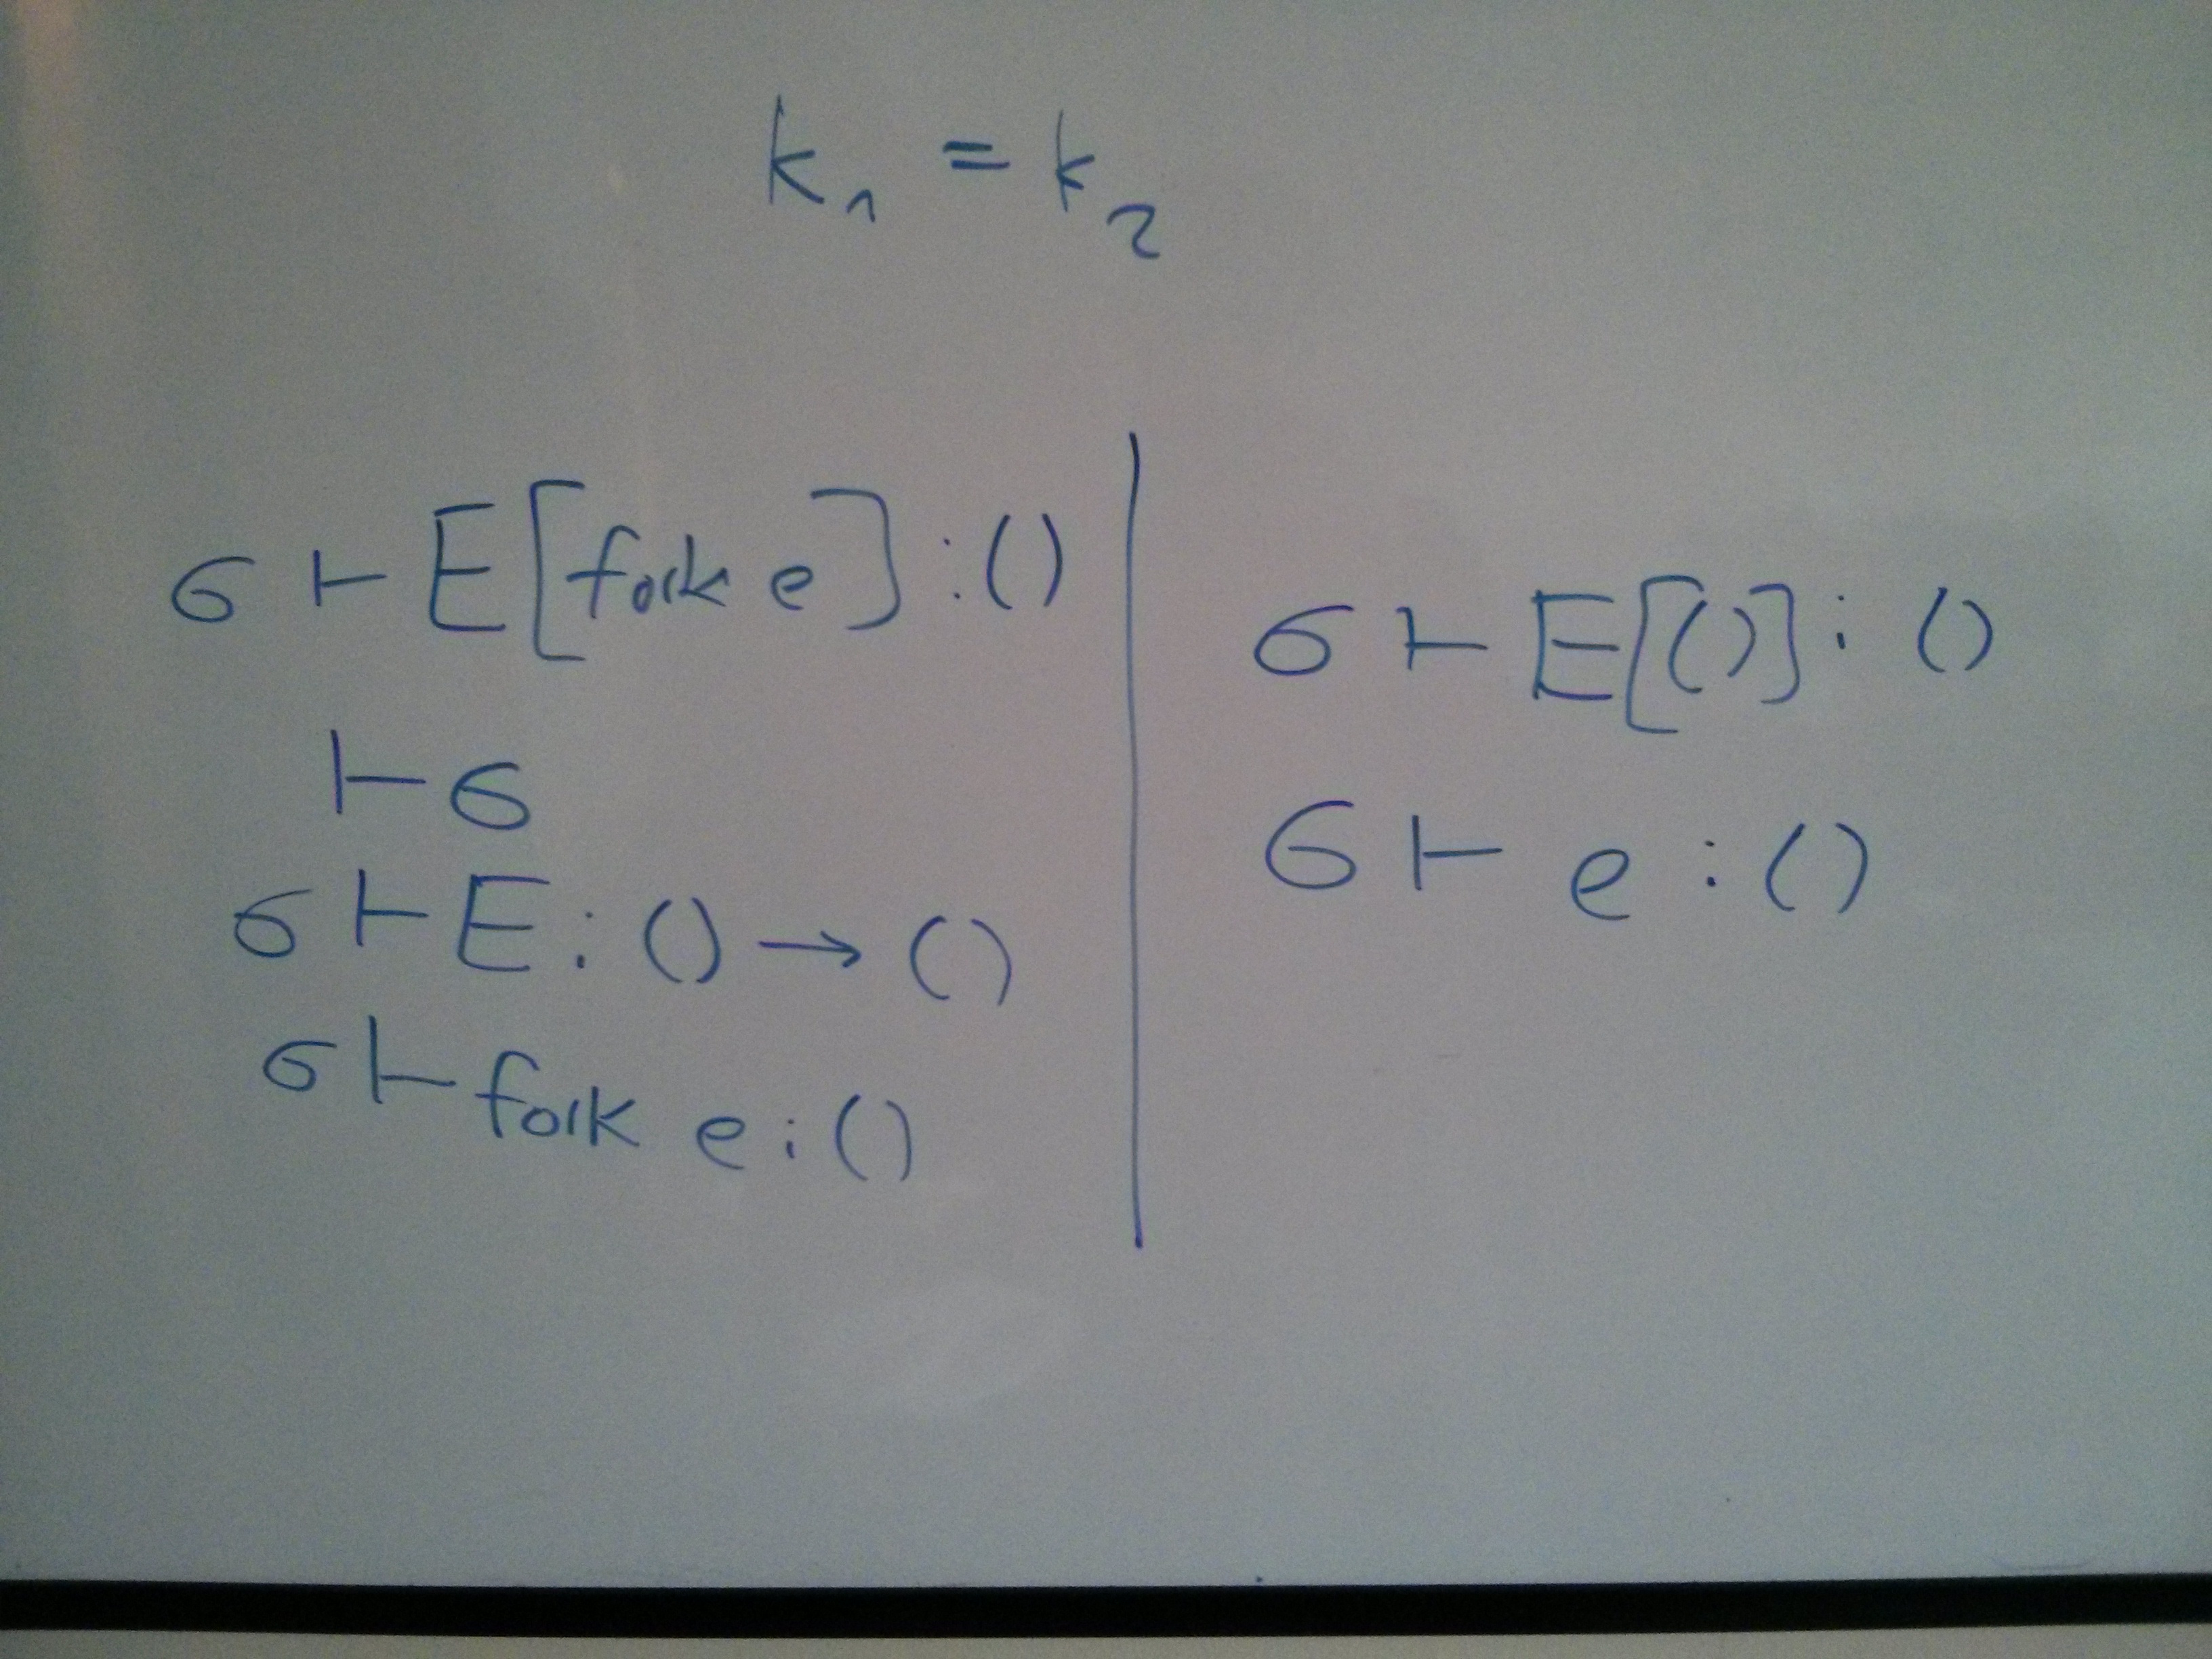 k₁ = k₂
σ ⊢ E[fork e] : ()
⊢ σ
σ ⊢ E : () → ()
σ ⊢ fork e : ()
σ ⊢ E[()] : ()
σ ⊢ e : ()